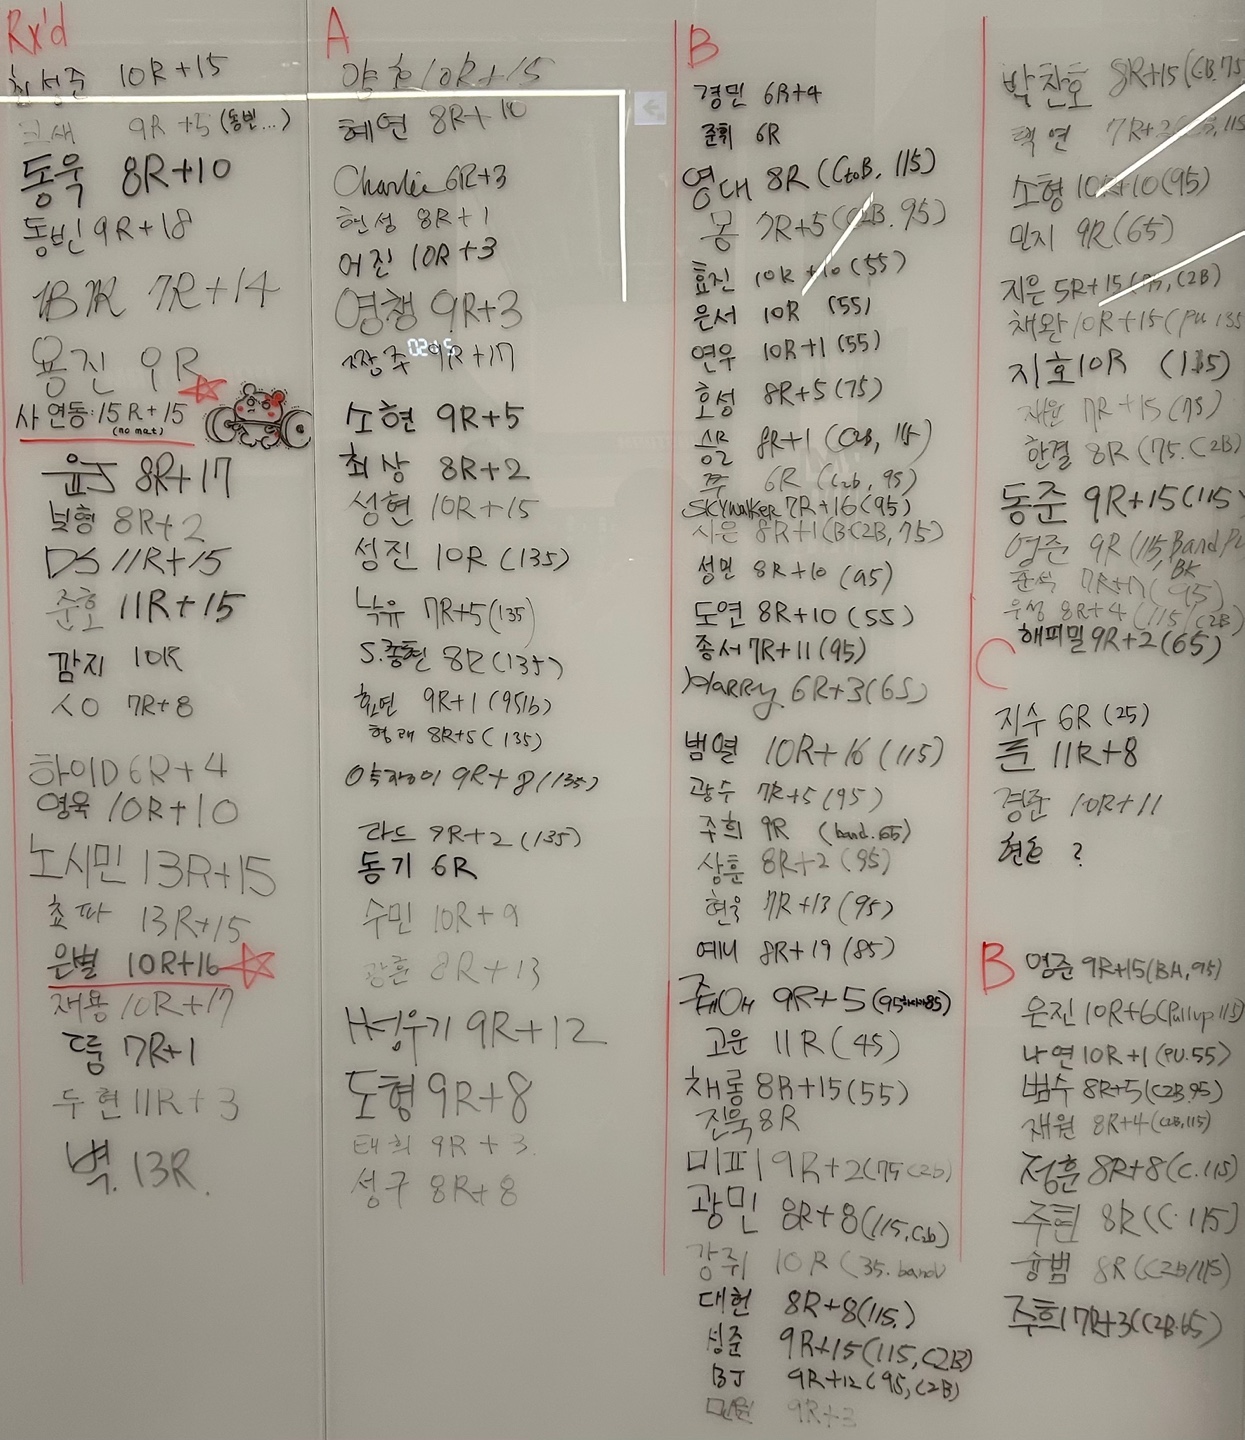 Rx'd
최성준 10R+15
9R+5 (동빈...)
동욱 8R+10
동빈 9R+18
7R+14
용진 9R
사연동:15R+15
(no mat)
윤J 8R+17
보형 8R+2
DS 11R+15
준호 11R+15
깜지 10R
ㅅㅇ 7R+8
하이D 6R+4
영욱 10R+10
노시민 13R+15
쵸파 13R+15
은별 10R+16
재용 10R+17
7R+1
두현 11R+3
벽. 13R.
A
양호 10R+15
혜연 8R+10
Charlie 6R+3
현성 8R+1
어진 10R+3
영쟁 9R+3
짱주 9R+17
소현 9R+5
최상 8R+2
성현 10R+15
성진 10R (135)
낙유 7R+5 (135)
S.종현 8R (135)
9R+1 (95lb)
형래 8R+5 (135)
9R+8 (135)
라드 9R+2 (135)
동기 6R
수민 10R+9
광훈 8R+13
9R+12
도형 9R+8
태희 9R+3
성구 8R+8
B
경민 6R+4
준휘 6R
영대 8R (CtoB, 115)
몽 7R+5 (C2B. 95)
효진 10R+10 (55)
은서 10R (55)
연우 10R+1 (55)
호성 8R+5 (75)
8R+1
쭈 6R (C2b, 95)
SKYWalKER 7R+16 (95)
시은 8R+1 (B(C2B, 75)
성민 8R+10 (95)
도연 8R+10 (55)
종서 7R+11 (95)
Harry 6R+3 (65)
범열 10R+16 (115)
광수 7R+5 (95)
주희 9R (band.65)
상훈 8R+2 (95)
현욱 7R+13 (95)
예니 8R+19 (85)
9R+5
고운 11R (45)
채롱 8R+15 (55)
진욱 8R
미피 9R+2 (75 C2b)
광민 8R+8 (115, C2b)
강쥐 10R (35. band)
대헌 8R+8 (115,)
성준 9R+15 (115, C2B)
BJ 9R+12 (95, C2B)
9R+3
박찬호 8R+15 (CB.75
택연 7R+2
소형 10R+10 (95)
민지 9R (65)
지은 5R+15 (75, C2B)
채완 10R+15 (PU 135
지호 10R (115)
재완 7R+15 (75)
한결 8R (75. C2B)
동준 9R+15 (115)
영준 9R (115, Band
준석 7R+17 (95)
우성 8R+4 (115/C2B)
해피밀 9R+2 (65)
C
지수 6R (25)
튼 11R+8
경준 10R+11
현승 ?
B
영준 9R+15 (BA, 95)
은진 10R+6 (Pullup 115)
나연 10R+1 (PU.55)
범수 8R+5 (C2B.95)
재원 8R+4 (C2B,115)
정훈 8R+8 (C.115)
주현 8R (C.115)
8R (C2B/115)
주희 17R+3 (C2B.65)